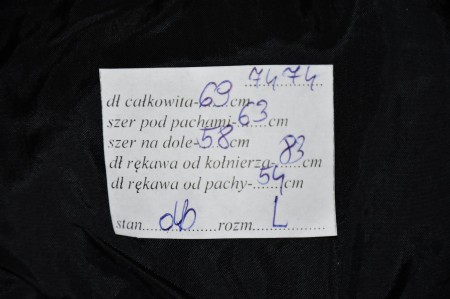 7474
dł całkowita-69cm
szer pod pachami-63cm
szer na dole-58cm
dł rękawa od kołnierza-83cm
dł rękawa od pachy-54cm
stan db rozm. L